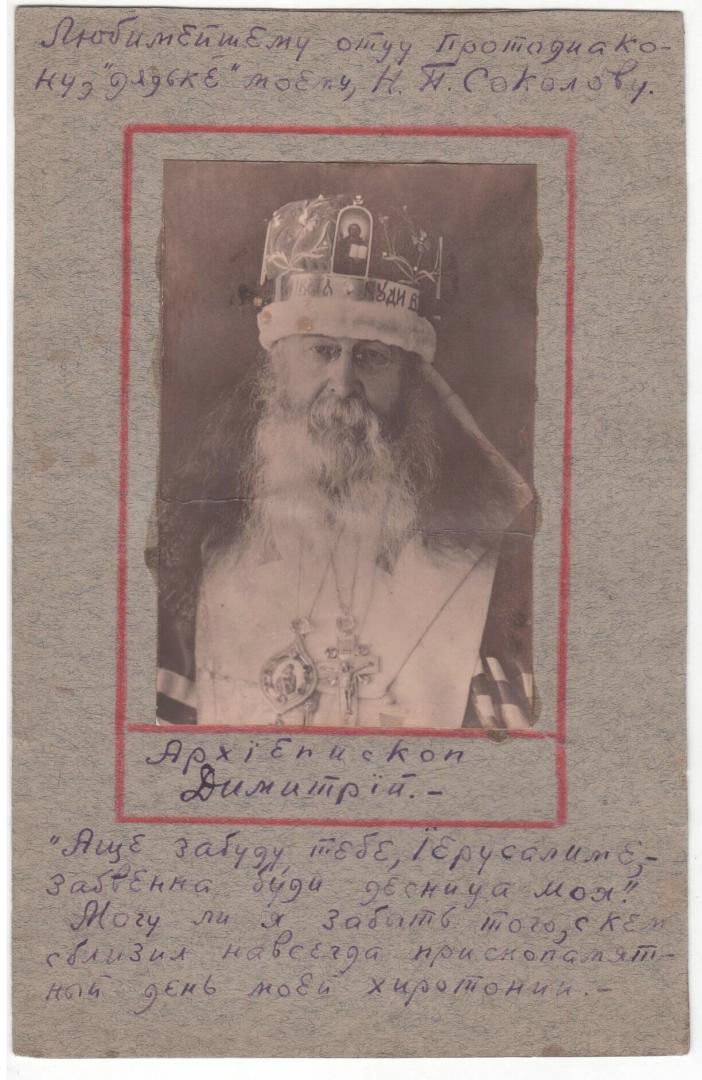 Любимейшему отцу Протодиако-
ну, "дядьке" моему, Н. П. Соколову.
БУДИ
Архіепископ
Димитрій.–
"Аще забуду тебе, Іерусалиме,–
забвенна буди десница моя".
Могу ли я забыть того, с кем
сблизил навсегда приснопамят-
ный день моей хиротонии.–